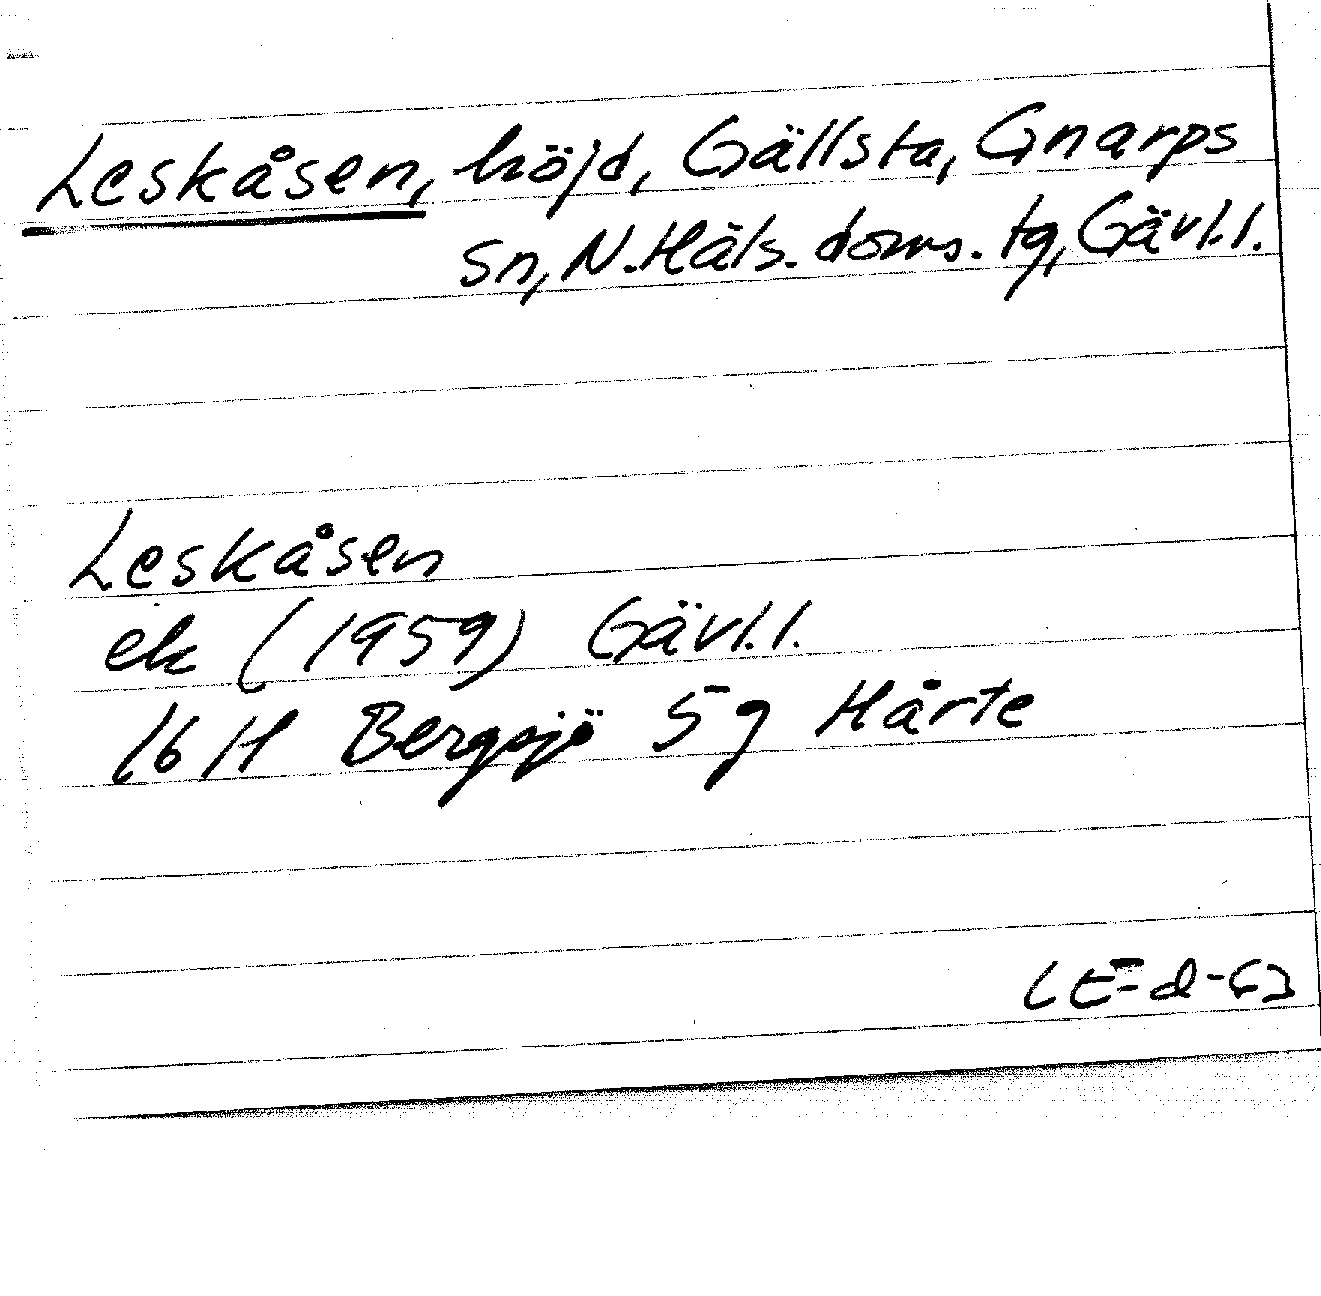 Leskåsen, höjd, Gällsta, Gnarps
sn, N. Häls. doms. tg, Gävl.l.
Leskåsen
ek (1959) Gävl.l.
16 H Bergsjö 5 g Hårte
(E-d-G)